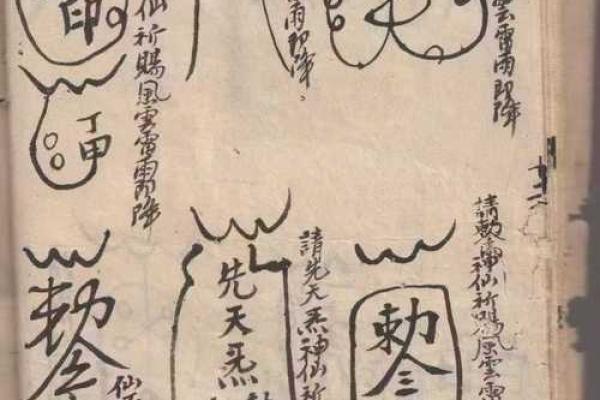 雲雷雨即降
雨即降
仙祈賜風雲雷雨即降
印
丁甲
請勅令神仙祈賜風雲雷
勅令
請先天炁神仙祈
先天炁
仙
勅令